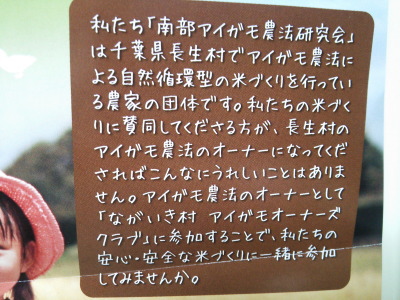 私たち「南部アイガモ農法研究会」
は千葉県長生村でアイガモ農法に
よる自然循環型の米づくりを行ってい
る農家の団体です。私たちの米づく
りに賛同してくださる方が、長生村の
アイガモ農法のオーナーになってくだ
さればこんなにうれしいことはありま
せん。アイガモ農法のオーナーとして
「ながいき村 アイガモオーナーズ
クラブ」に参加することで、私たちの
安心・安全な米づくりに一緒に参加
してみませんか。